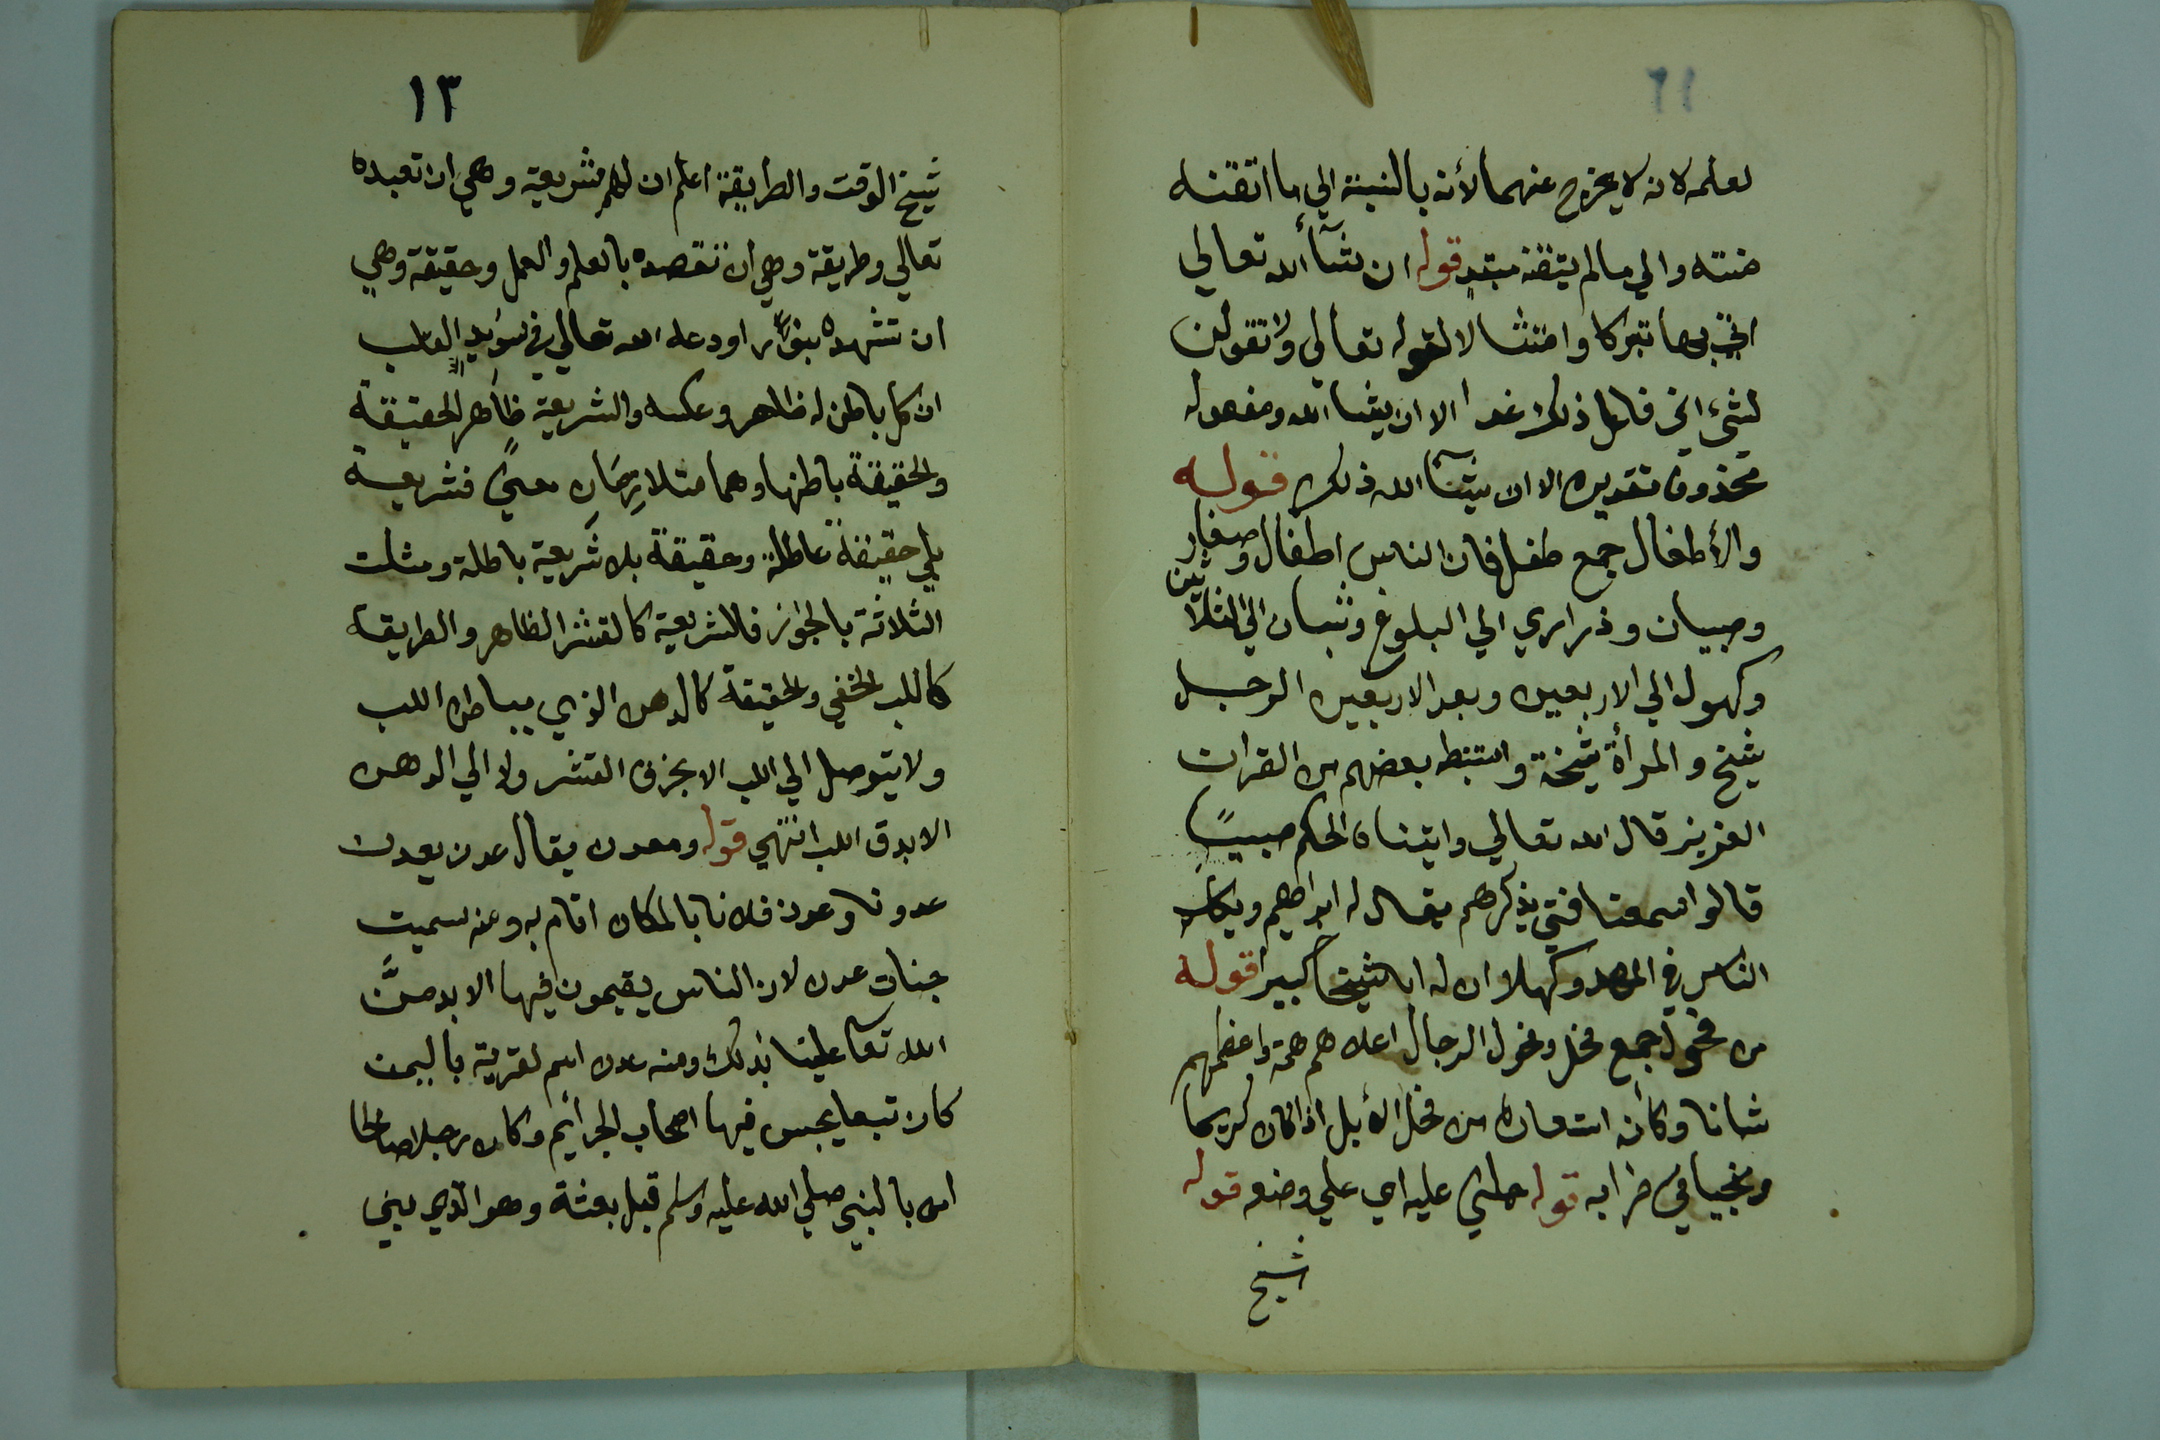 لعلمه لانه لا يخرج عنهما لأنه بالنسبة الي ما اتقنه
منته والي مالم يتقنه مبتدٍ قوله ان شآأ الله تعالي
اتي بها تبركا وامتثالا لقوله تعالي ولا تقولن
لشيء اني فاعل ذلك غدا الا ان يشا الله ومفعوله
محذوف تقديره الا ان يشآ الله ذلك قوله
والأطفال جمع طفل فان الناس اطفال وصغار
وصبيان وذراري الي البلوغ وشبان الي الثلاثين
وكهول الي الاربعين وبعد الاربعين الرجل
شيخ والمرأة شيخة واستنبط بعضهم من القران
العزيز قال الله تعالي واتيناه الحكم صبيبًا
قالوا سمعنا فتي يذكرهم يقال له ابراهيم ويكلم
الناس في المهد وكهلا ان له ابا شيخا كبيرا قوله
من فحول جمع فحل وفحول الرجال اعلاهم همة واعظمهم
شانا وكأنه استعاره من فحل الأبل اذا كان كريما
ومنجيا في ضرابه قوله حملني عليه اي علي وضعه قوله
شيخ
١٣
شيخ الوقت والطريقة اعلم ان لهم شريعة وهي ان تعبده
تعالي وطريقة وهي ان تقصده بالعلم والعمل وحقيقة وهي
ان تشهده بنور اودعه الله تعالي في سويدا القلب
ان كل باطن له ظاهر وعكسه والشريعة ظاهر الحقيقة
والحقيقة باطنها وهما متلازمان معنيً فشريعة
بلي حقيقة عاطلة وحقيقة بلا شريعة باطلة ومثلت
الثلاثة بالجواز فالشريعة كالقشر الظاهر والطريقة
كاللب الخفي والحقيقة كالدهن الذي بباطن اللب
ولا يتوصل الي اللب الا بخرق القشر ولا الي الدهن
الا بدق اللب انتهي قوله ومعدن يقال عدن يعدن
عدونا وعدن فلانا بالمكان اقام به ومنه سميت
جنات عدن لان الناس يقيمون فيها الابد منَّ
الله تعا علينا بذلك ومنه عدن اسم لقرية باليمن
كان تبعا يحبس فيها اصحاب الجرائم وكان رجلا صالحا
امن بالنبي صلي الله عليه وسلم قبل بعثة وهو الذي بني